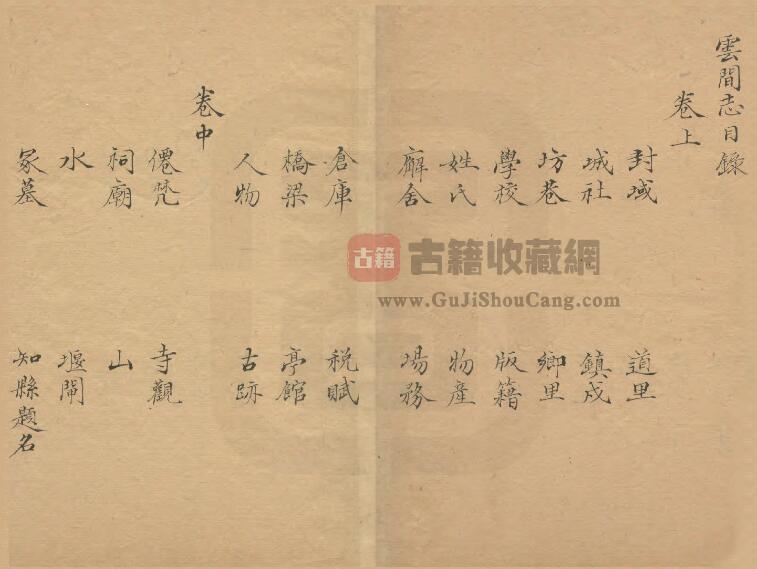 雲間志目錄
卷上
封域 道里
城社 鎮戍
坊巷 鄉里
學校 版籍
姓氏 物產
廨舍 場務
倉庫 稅賦
橋梁 亭館
人物 古跡
卷中
僊梵 寺觀
祠廟 山
水 堰閘
冢墓 知縣題名
古籍 古籍收藏網
www.GuJiShouCang.com